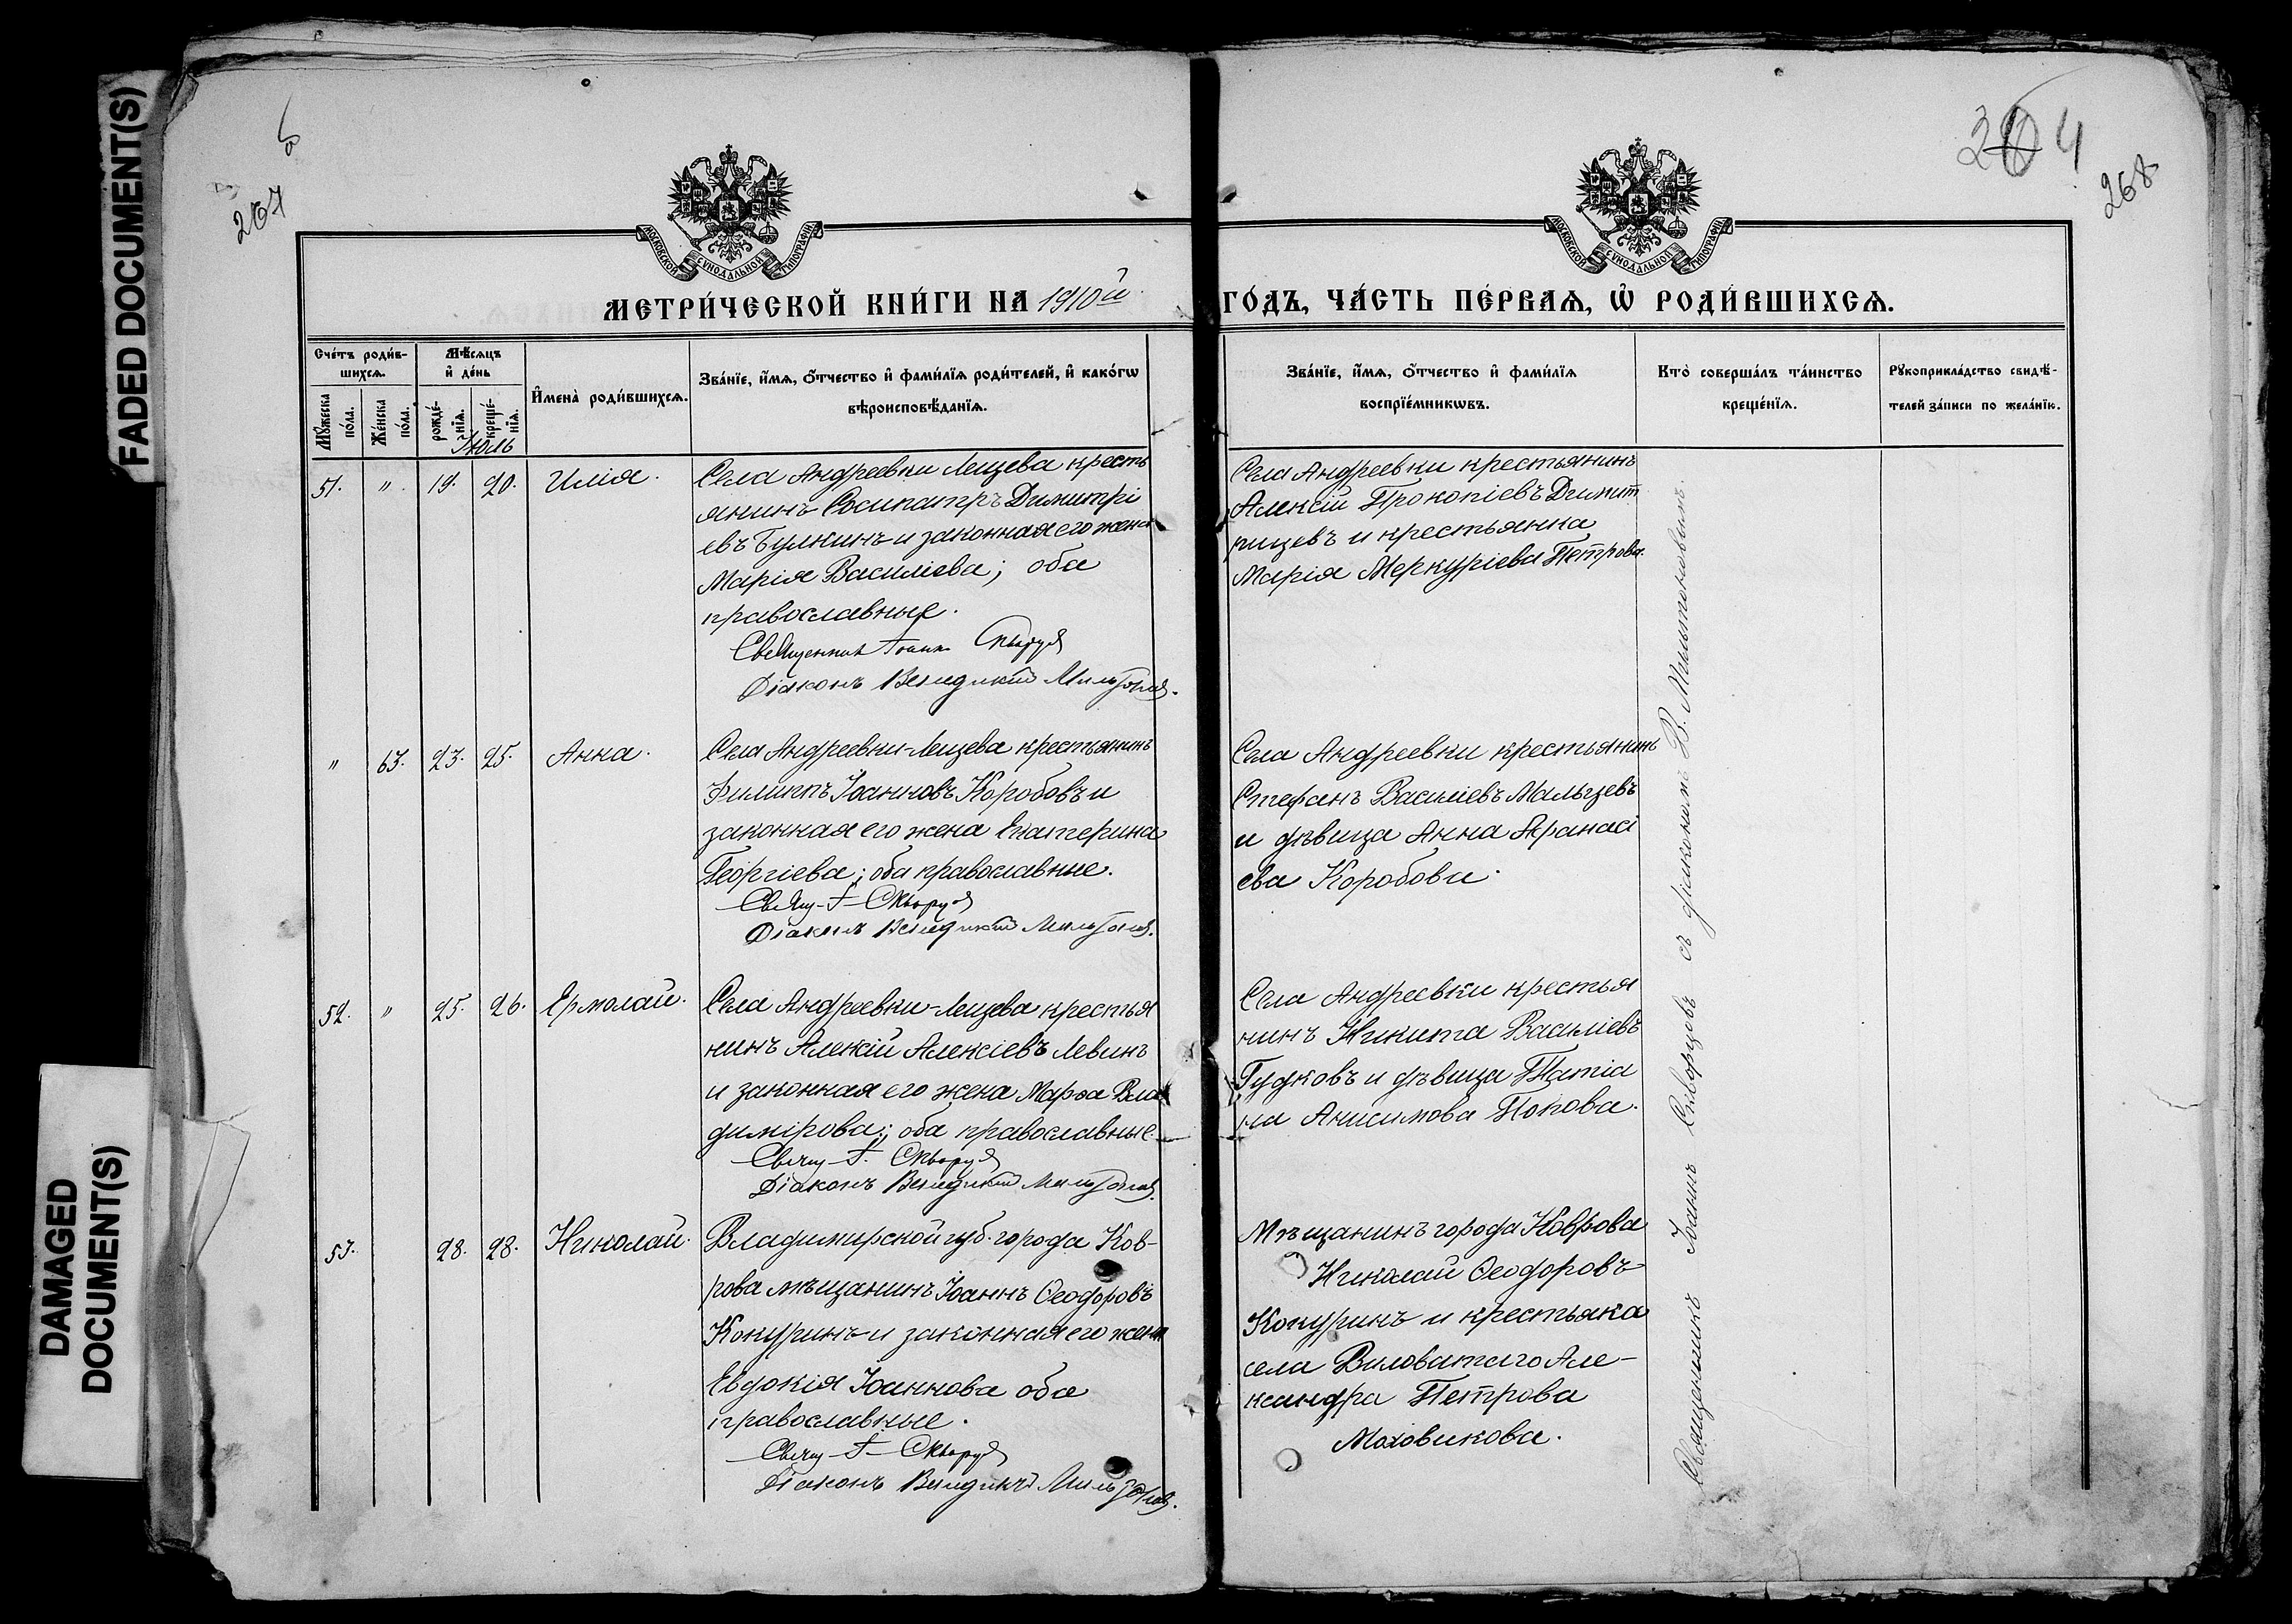 FADED DOCUMENT(S)
DAMAGED
DOCUMENT(S)
267
264
268
МОСКОВСКОЙ СѴНОДАЛЬНОЙ ТИПОГРАФІИ
МОСКОВСКОЙ СѴНОДАЛЬНОЙ ТИПОГРАФІИ
МЕТРИ́ЧЕСКОЙ КНИ́ГИ НА 1910й
ГО́ДЪ, ЧА́СТЬ ПЕ́РВАѦ, Ѡ҆ РОДИ́ВШИХСѦ.
Сче́тъ роди́в-
шихсѧ.
Мꙋ́жеска по́ла.
Же́нска по́ла.
Мѣ́сѧцъ
и҆ де́нь
рожде́-
нїѧ.
креще́-
нїѧ.
И҆мена̀ роди́вшихсѧ.
Зва́нїе, и҆́мѧ, ѻ҆́тчество и҆ фами́лїѧ роди́телей, и҆ како́гѡ
вѣроисповѣ́данїѧ.
Зва́нїе, и҆́мѧ, ѻ҆́тчество и҆ фами́лїѧ
воспрїе́мникѡвъ.
Кто̀ соверша́лъ та́инство
креще́нїѧ.
Рꙋкоприкла́дство свидѣ́-
телей за́писи по жела́нїю.
Іюль
51. " 19. 20. Илія.
Села Андреевки Лещева кресть
янинъ Сосипатръ Димитрі
евъ Булкинъ и законная его жена
Марія Василіева; оба
православные.
Священник Іоанн Скворцов
Діаконъ Венедиктъ Мильтонов.
Села Андреевки крестьянинъ
Алексій Прокопіевъ Димит
рицевъ и крестьянка
Марія Меркуріева Петрова.
" 63. 23. 25. Анна.
Села Андреевки-Лещева крестьянинъ
Филиппъ Іоанновъ Коробовъ и
законная его жена Екатерина
Георгіева; оба православные.
Свящ. І. Скворцов
Діаконъ Венедиктъ Мильтонов.
Села Андреевки крестьянинъ
Стефанъ Василіевъ Мальцевъ
и дѣвица Анна Аѳанасі
ева Коробова.
52. " 25. 26. Ермолай.
Села Андреевки-Лещева крестья
нинъ Алексій Алексіевъ Левинъ
и законная его жена Марѳа Вла
димірова; оба православные.
Свящ. І. Скворцов
Діаконъ Венедиктъ Мильтонов.
Села Андреевки крестья
нинъ Никита Василіевъ
Гудковъ и дѣвица Татіа
на Анисимова Попова.
53. 28. 28. Николай.
Владимирской губ. города Ков-
рова мѣщанинъ Іоаннъ Ѳеодоровъ
Кокуринъ и законная его жена
Евдокія Іоаннова оба
православные.
Свящ. І. Скворцов
Діаконъ Венедиктъ Мильтонов.
Мѣщанинъ города Коврова
Николай Ѳеодоровъ
Кокуринъ и крестьяка
села Виловатаго Але-
ксандра Петрова
Маховикова.
Священникъ Іоаннъ Скворцовъ съ діакономъ В. Мильтоновымъ.